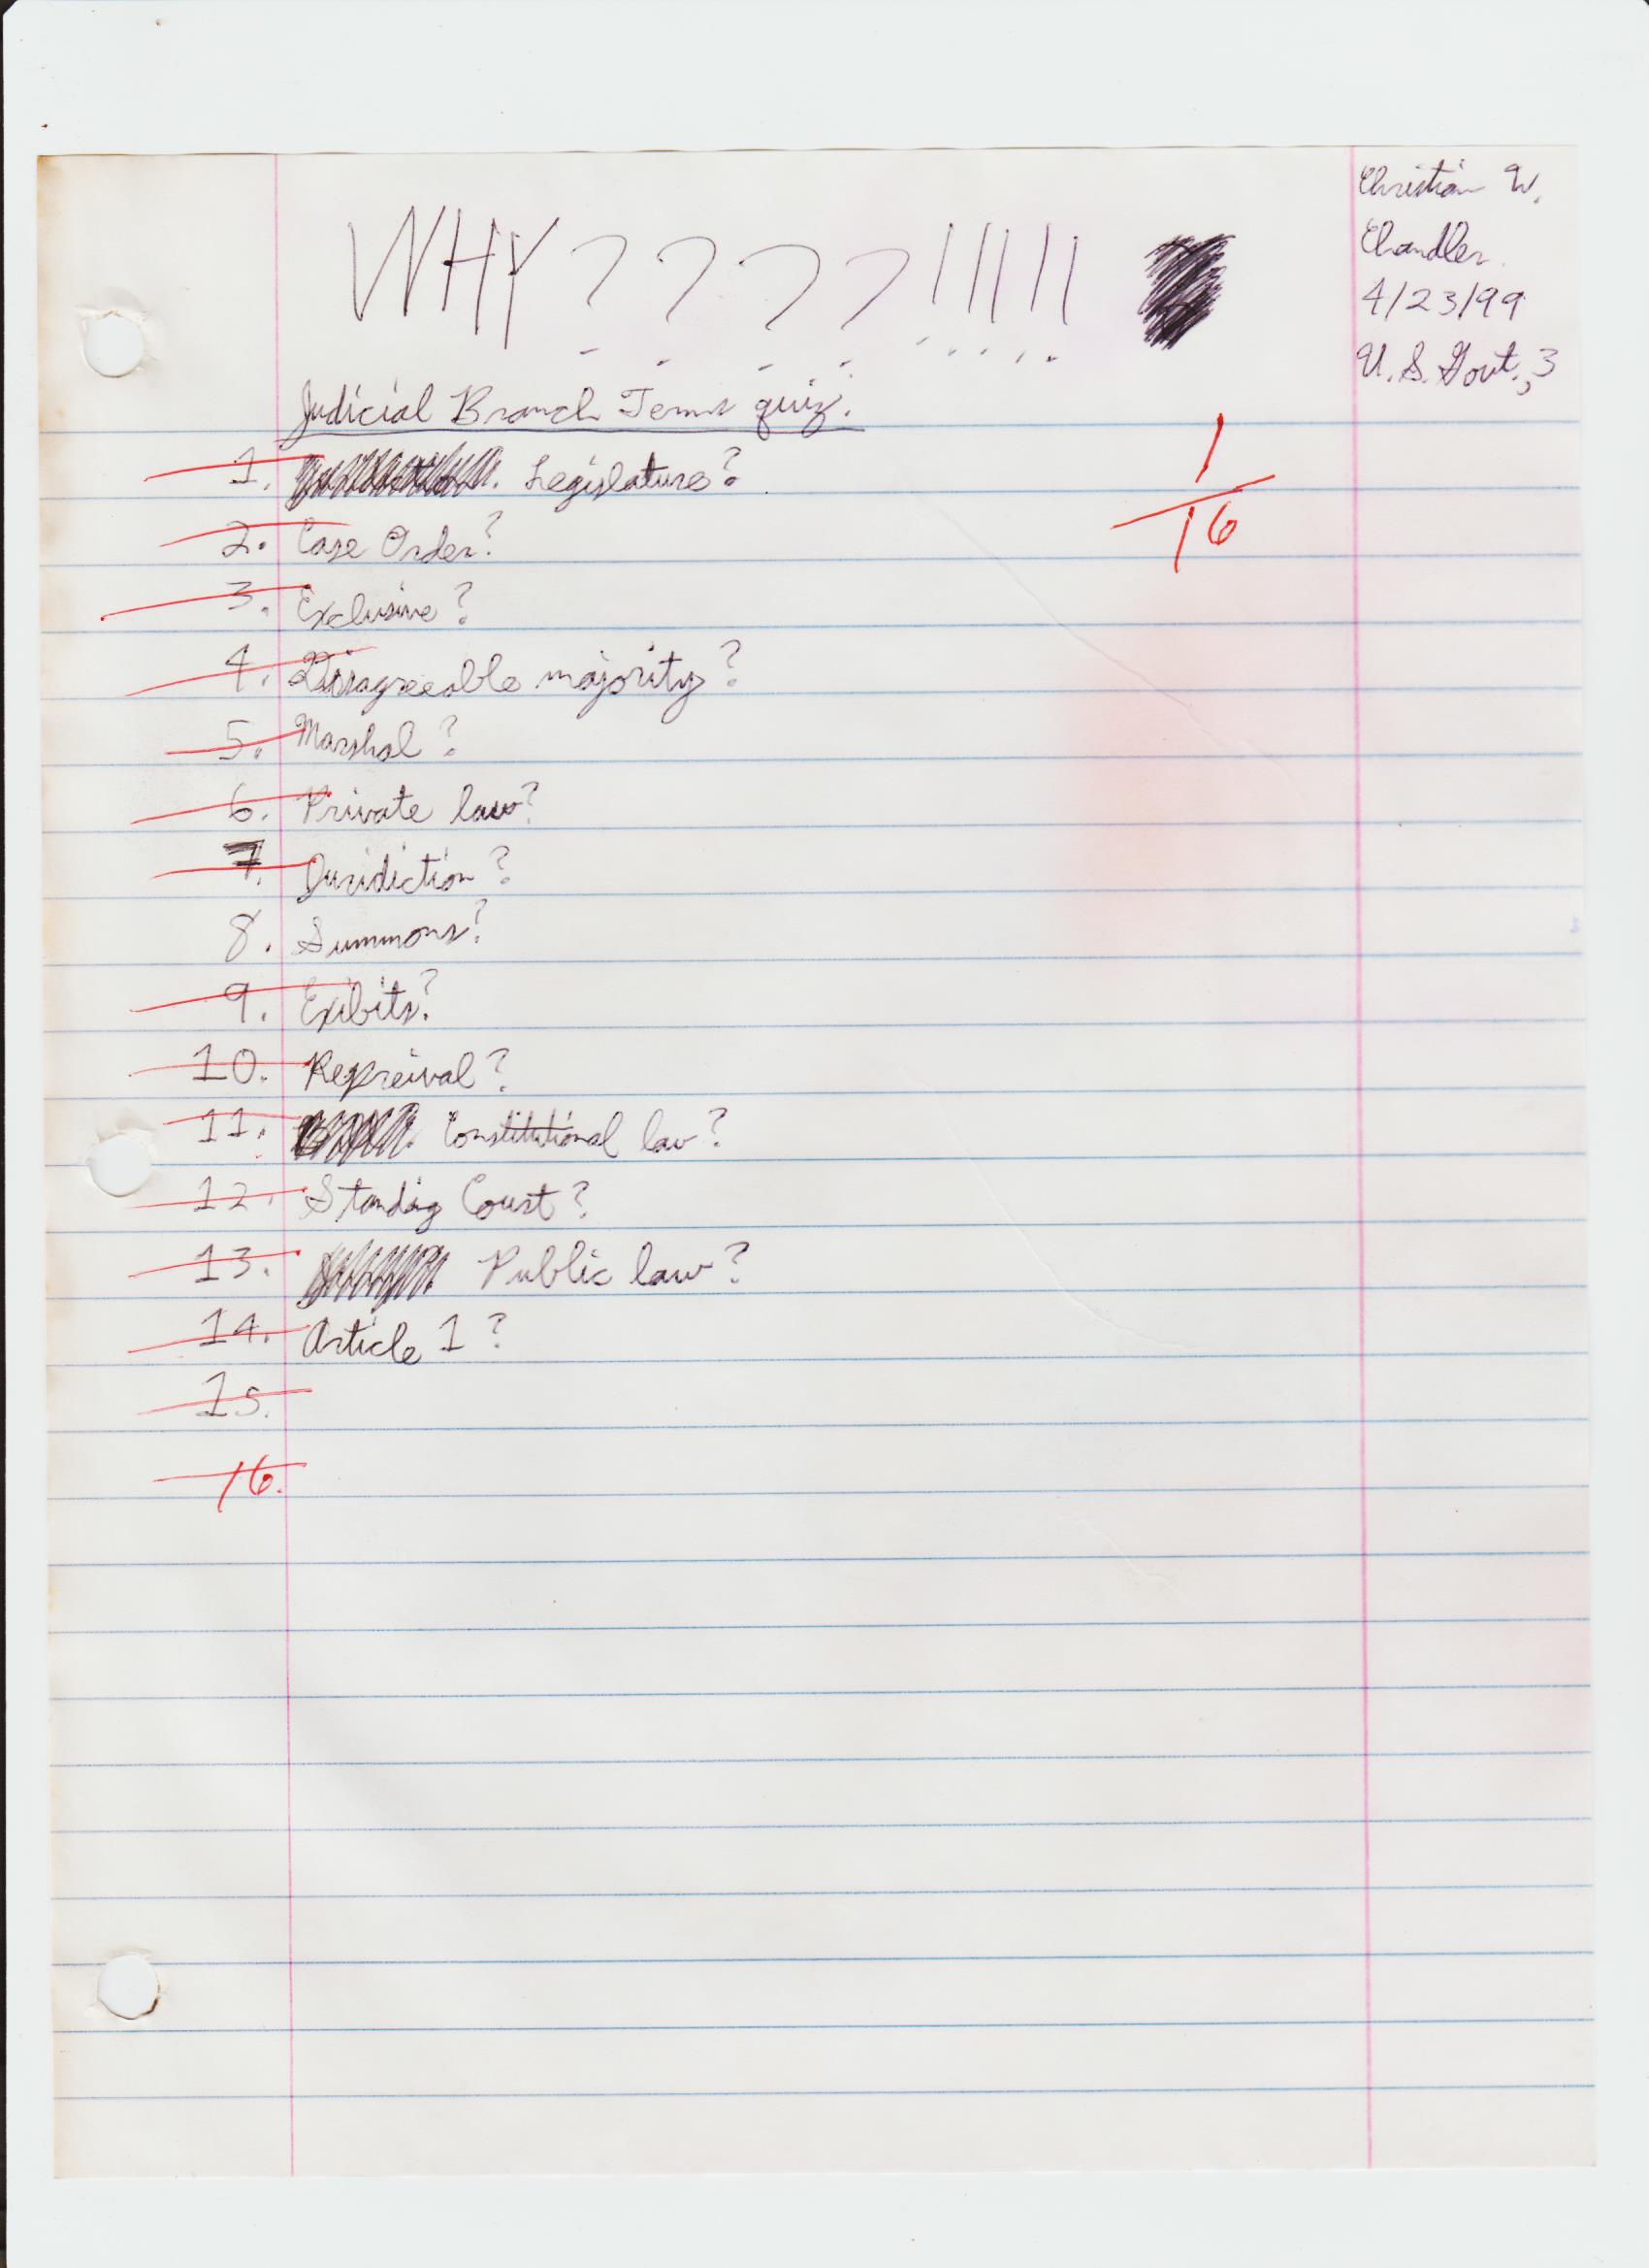 Christian W.
Chandler
4/23/99
U.S. Govt., 3
WHY????!!!!!
Judicial Branch Terms quiz.
1
16
1. Legislature?
2. Case Order?
3. Exclusive?
4. Disagreeable majority?
5. Marshal?
6. Private law?
7. Juridiction?
8. Summons?
9. Exibits?
10. Repreival?
11. Constitutional law?
12. Standing Court?
13. Public law?
14. Article 1?
15.
16.